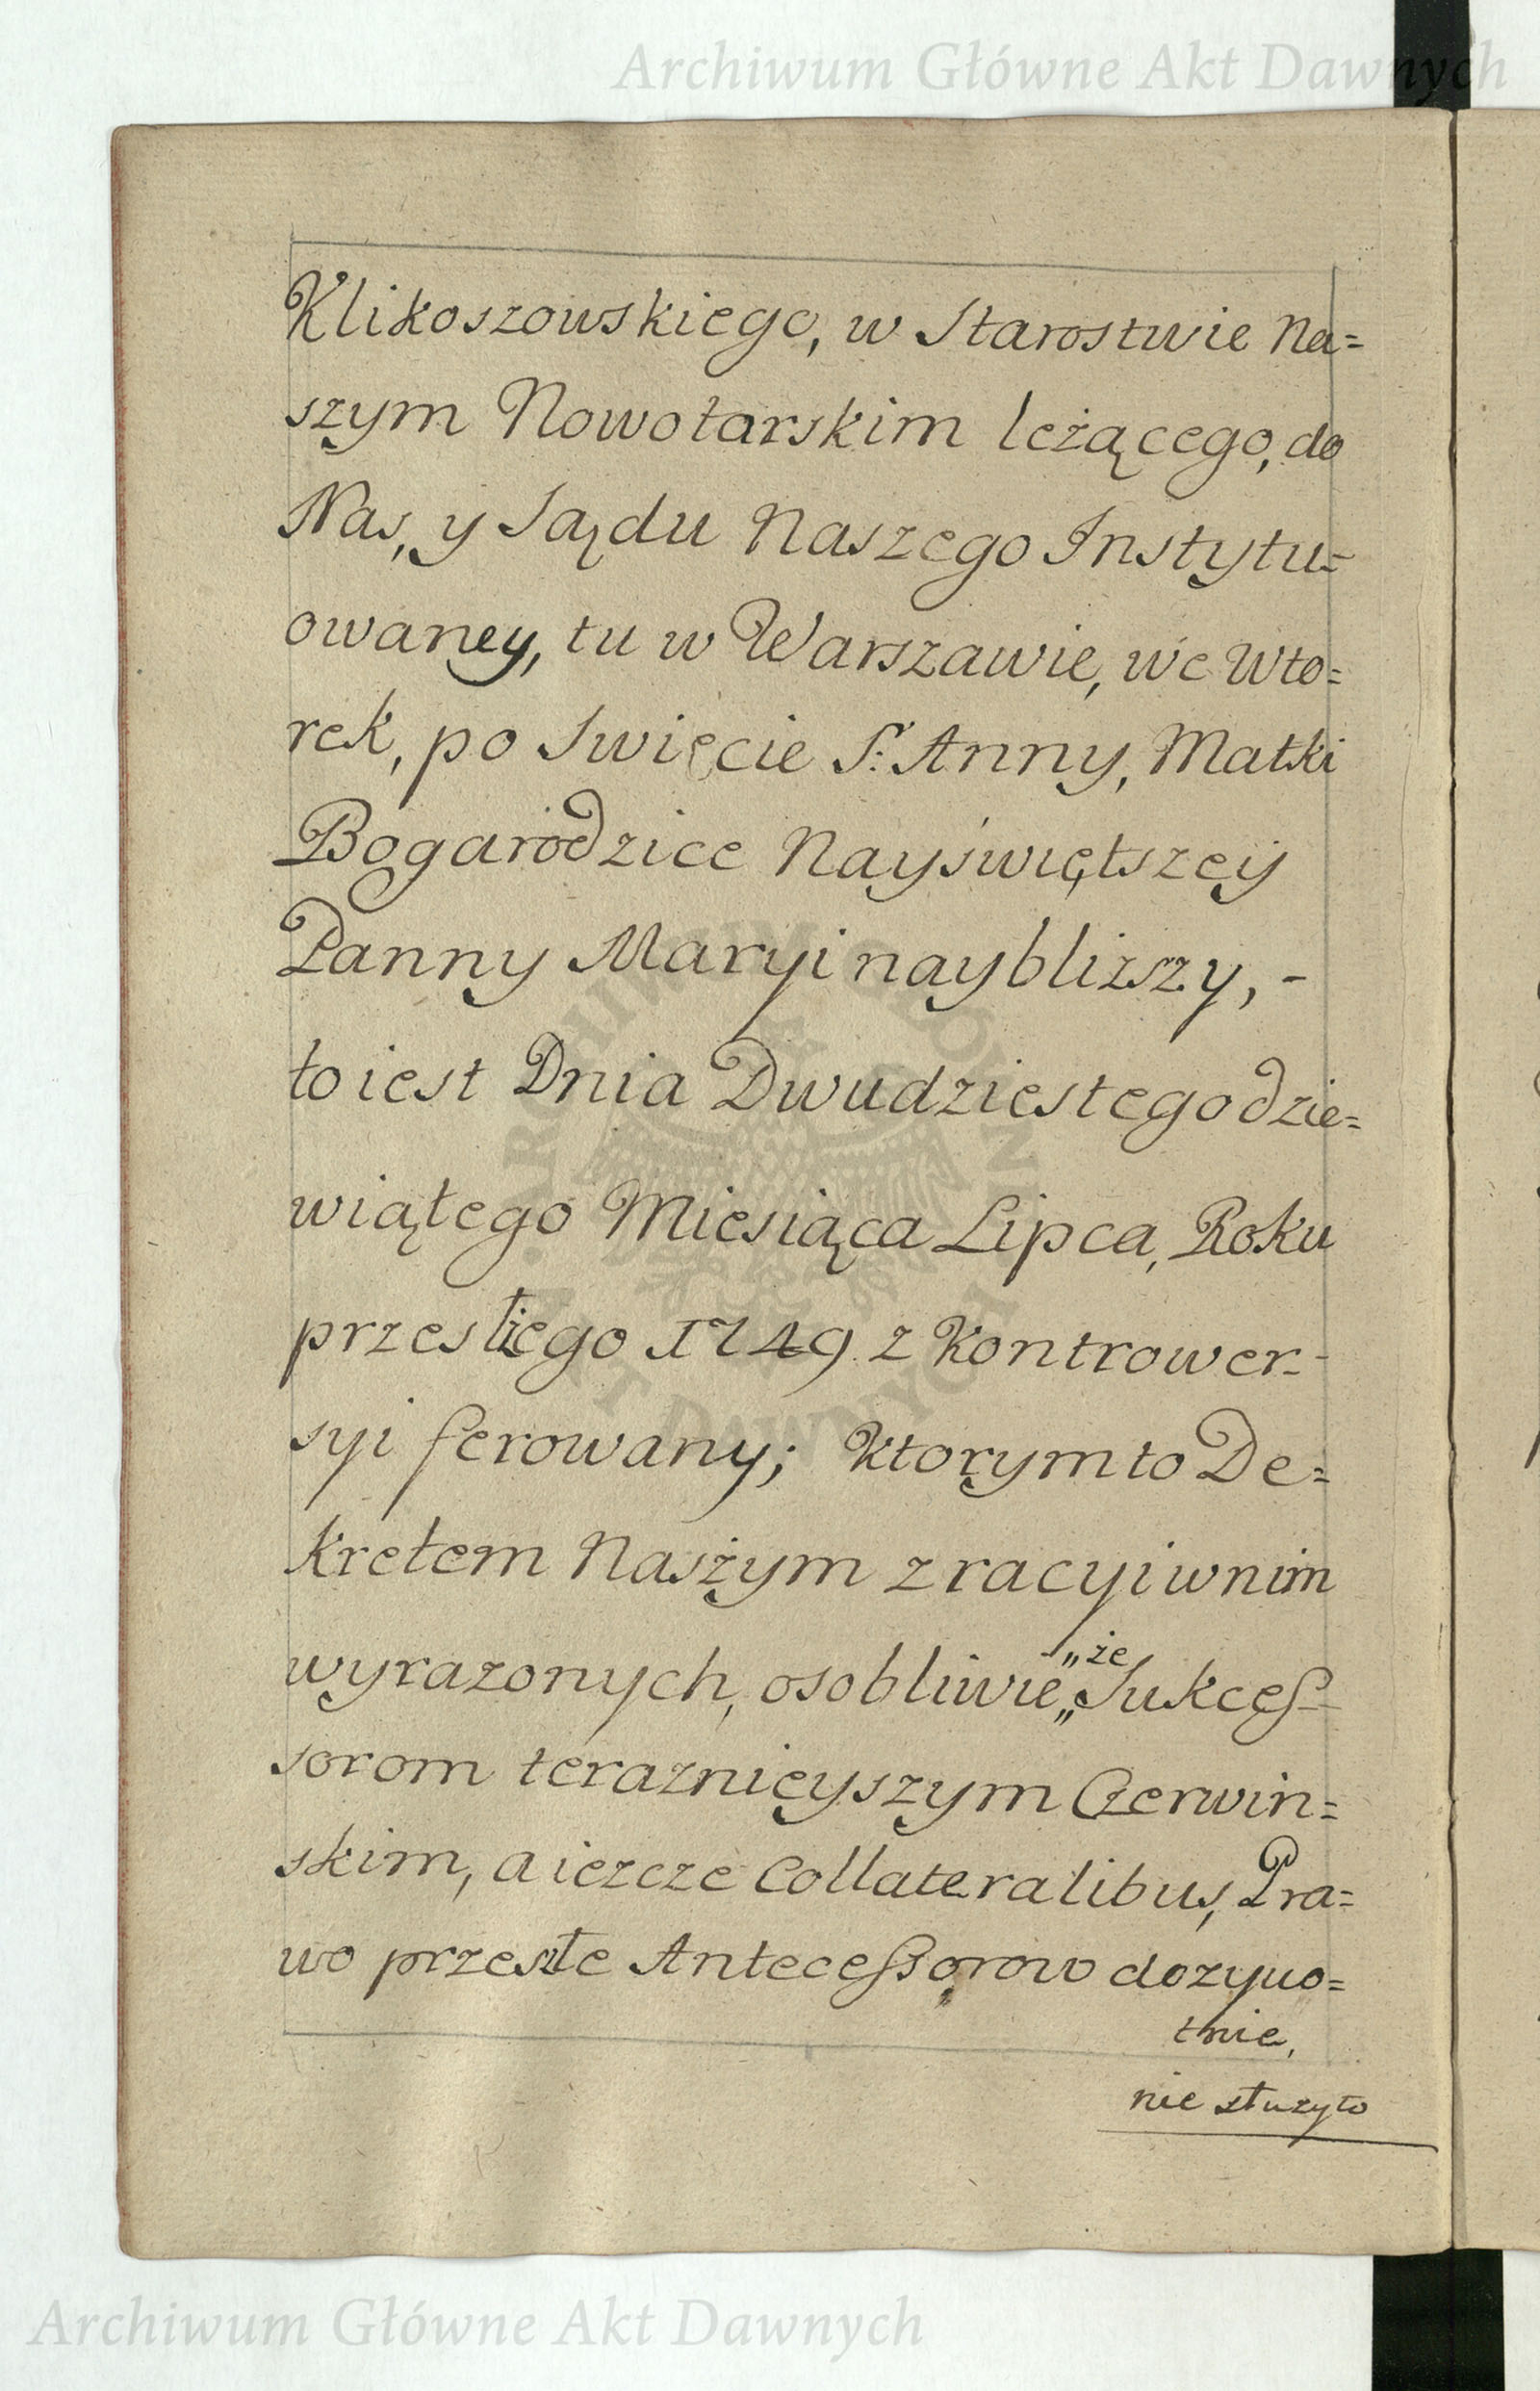 Archiwum Główne Akt Dawnych
Klikoszowskiego, w Starostwie Na=
szym Nowotarskim leżącego, do
Nas, y Sądu Naszego Instytu=
owaney, tu w Warszawie, we Wto=
rek, po Swięcie S: Anny, Matki
Bogarodzice Nayświętszey
Panny Maryi naybliższy, -
to iest Dnia Dwudziestego dzie=
wiątego Miesiąca Lipca, Roku
przeszłego 1749 z Kontrower-
syi ferowany; Ktorym to De=
kretem Naszym z racyi w nim
wyrazonych, osobliwie „że„ Sukces-
sorom teraznieyszym Czerwin=
skim, a ieszcze Collateralibus, Pra=
wo przeszłe Antecessorow dozywo=
tnie,
nie służyło
Archiwum Główne Akt Dawnych